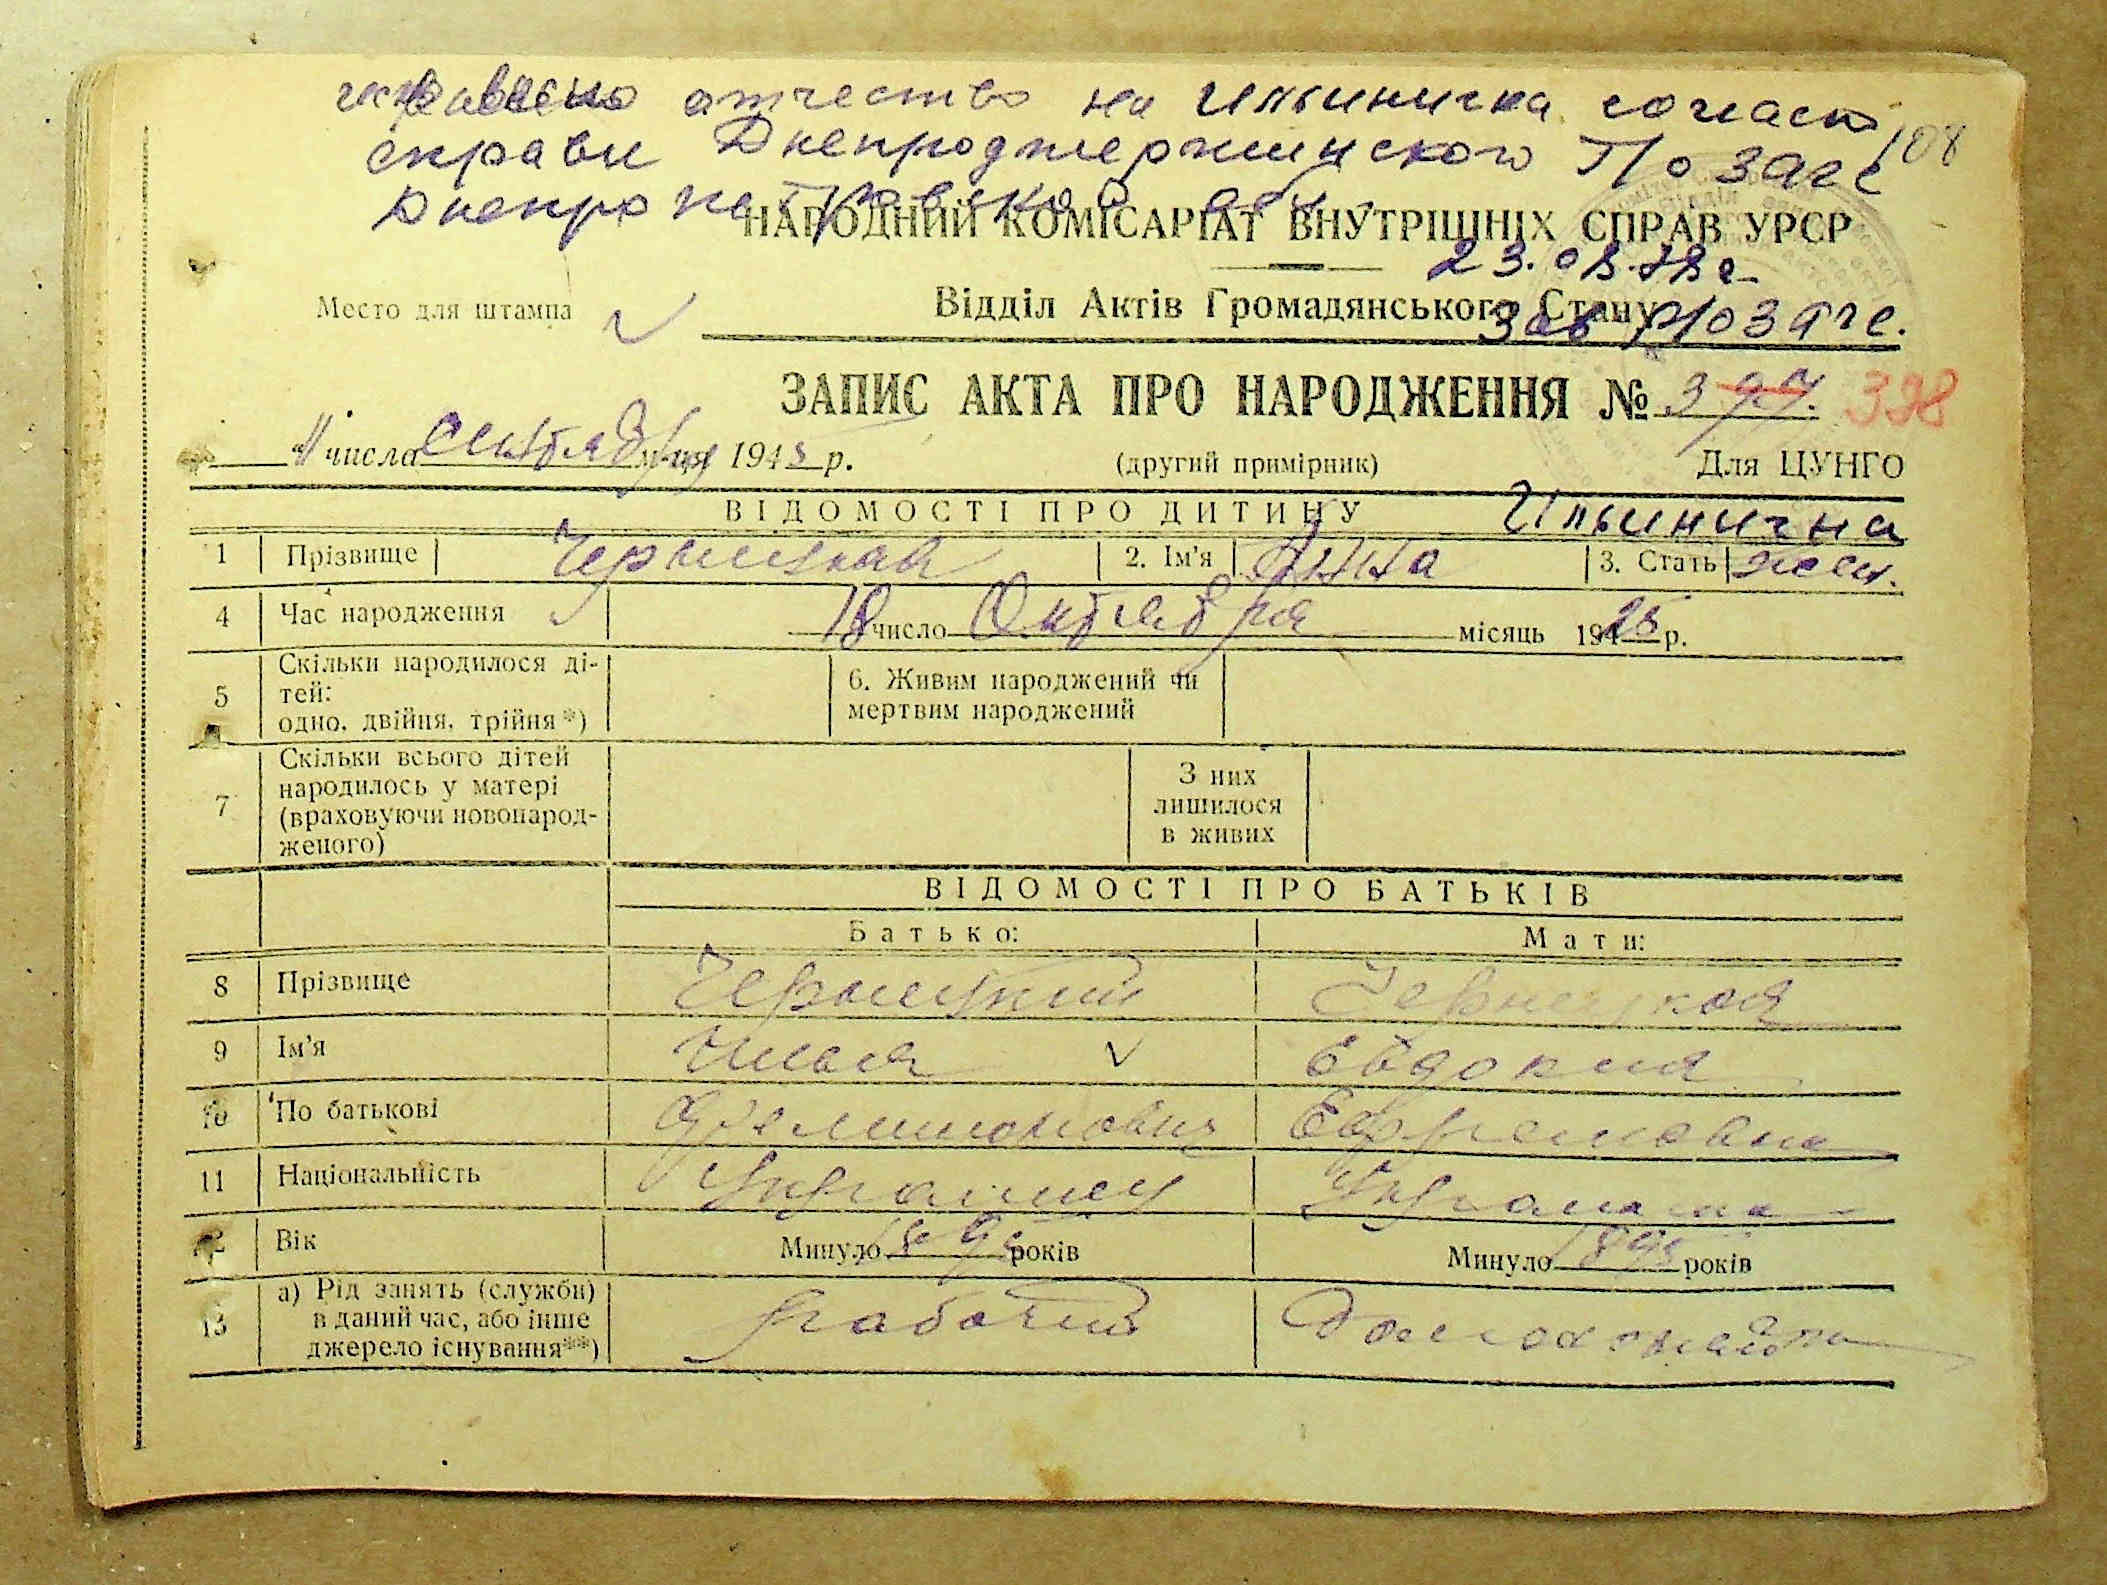 исправлено отчество на Ильинична согласно
справки Днепродзержинского ГОЗАГС 108
Днепропетровской обл.
НАРОДНИЙ КОМІСАРІАТ ВНУТРІШНІХ СПРАВ УРСР
23.08.78г
Место для штампа Відділ Актів Громадянського Стану
Зав ГОЗАГС.
ЗАПИС АКТА ПРО НАРОДЖЕННЯ № 397. 398
11 числа Сентября м-ця 1945 р. (другий примірник) Для ЦУНГО
ВІДОМОСТІ ПРО ДИТИНУ Ильинична
1 Прізвище Черницкая 2. Ім'я Анна 3. Стать жен.
4 Час народження 18 число Октября місяць 1925 р.
5 Скільки народилося ді-
тей:
одно, двійня, трійня*)
6. Живим народжений чи
мертвим народжений
7 Скільки всього дітей
народилось у матері
(враховуючи новонарод-
женого)
З них
лишилося
в живих
ВІДОМОСТІ ПРО БАТЬКІВ
Батько: Мати:
8 Прізвище Черницкий Черницкая
9 Ім'я Илья Евдокия
10 По батькові Филимонович Ефремовна
11 Національність Украинец Украинка
12 Вік Минуло років Минуло років
13 а) Рід занять (служби)
в даний час, або інше
джерело існування**)
рабочий Домохозяйка